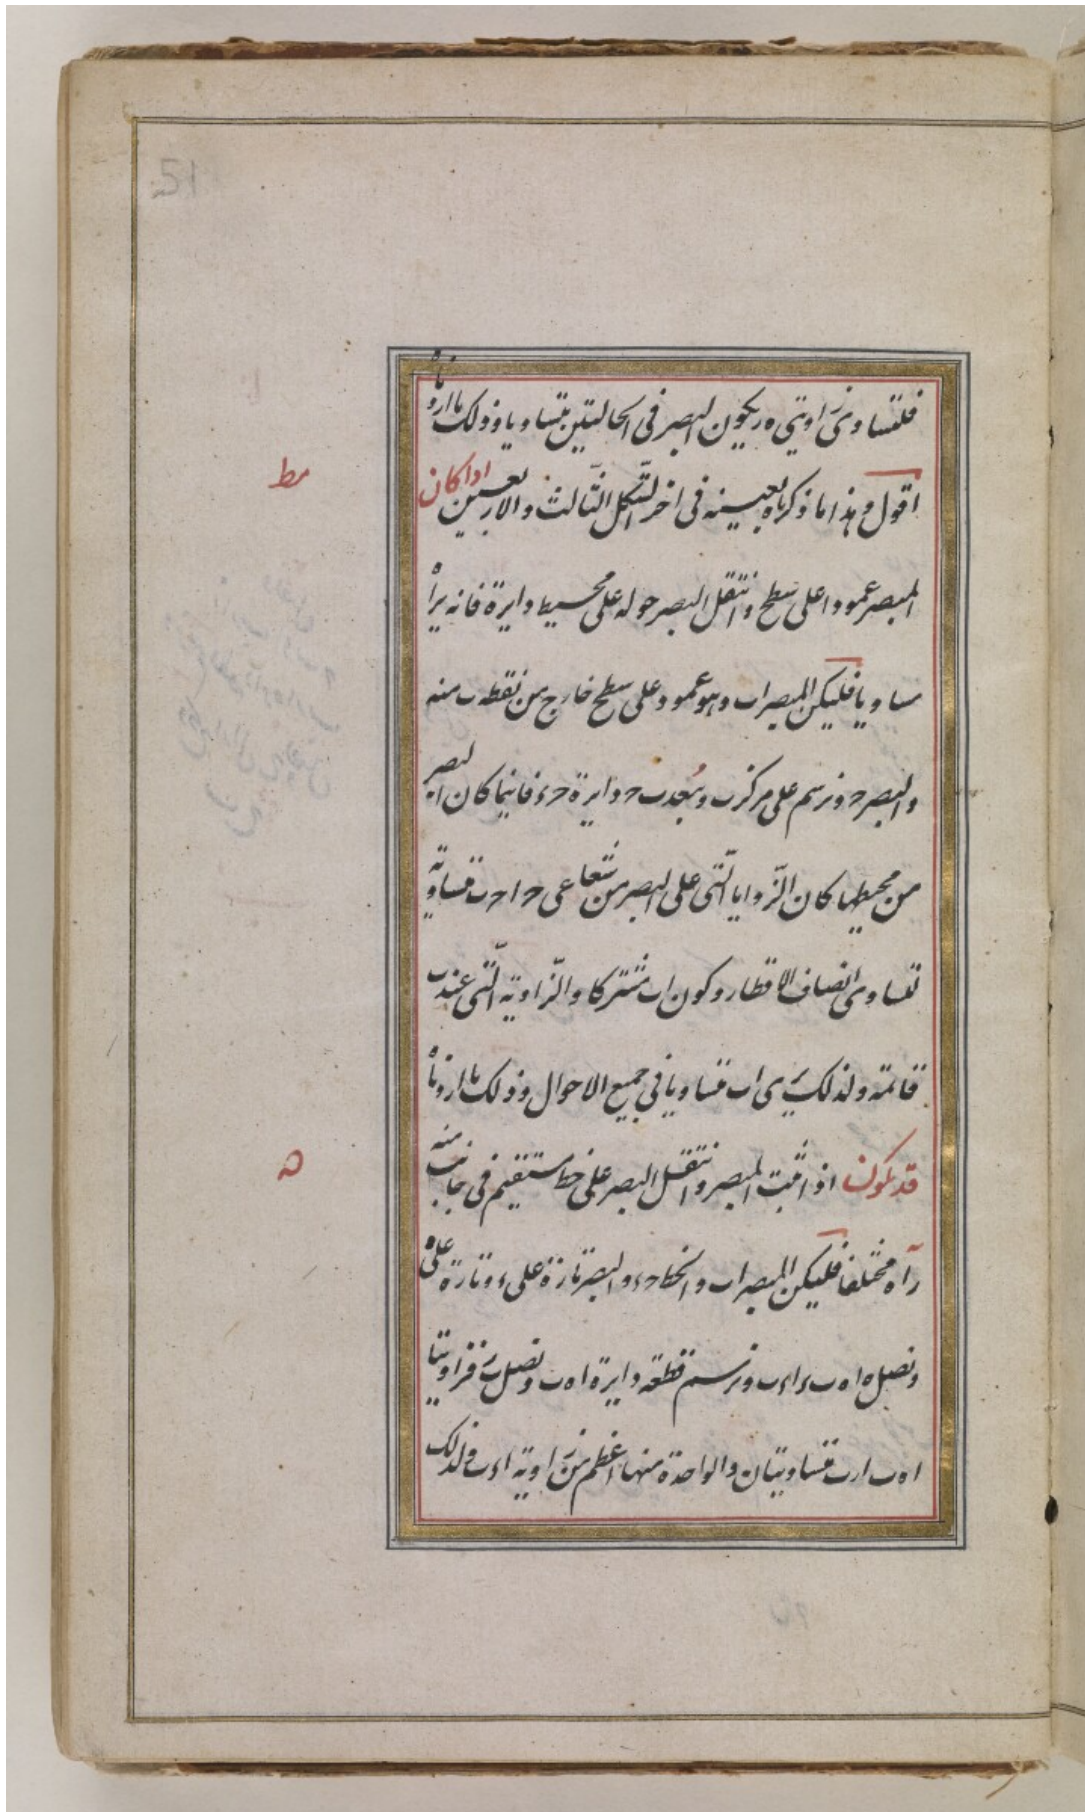 51
فلتساوى زاويتى ه ر يكون البصر فى الحالتين متساويا وذلك ما اردناه
اقول وهذا ما ذكرناه بعينه فى اخر الشكل الثالث والاربعين اذا كان
مط
المبصر عمودا على سطح وانتقل البصر حوله على محيط دايرة فانه يراه
مساويا فليكن المبصر اب وهو عمود على سطح خارج من نقطة ب منه
والبصر ح ونرسم على مركز ب وببعد ب ح دايرة ح ء فاينما كان البصر
من محيطها كان الزوايا الّتى على البصر من شعاعى ح ا ح ب متساوية
لتساوى انصاف الاقطار وكون اب مشتركا والزاوية الّتى عند ب
قائمة ولذلك يرى اب متساويا فى جميع الاحوال وذلك ما اردناه
قد يكون اذا ثبت المبصر وانتقل البصر على خط مستقيم فى جانب منه
ن
رآه مختلفا فليكن المبصر اب والخط ح ء والبصر تارة على ء وتارة على ه
ونصل ا ه ب ء ا ء ب ونرسم قطعة دايرة ا ه ب ونصل ب ر فزاويتا
ا ه ب ا ر ب متساويتان والواحدة منها اعظم من زاوية ا ء ب ولذلك